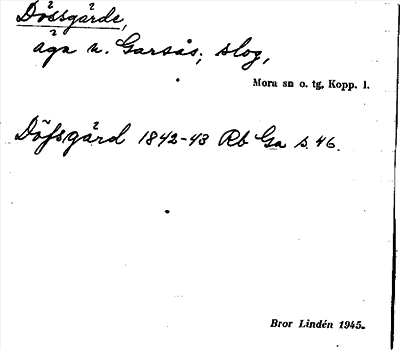 Dössgårde,
äga n. Garsås; slog,
Mora sn o. tg, Kopp. l.
Döfsgård 1842-43 Rb Ga s. 46.
Bror Lindén 1945.